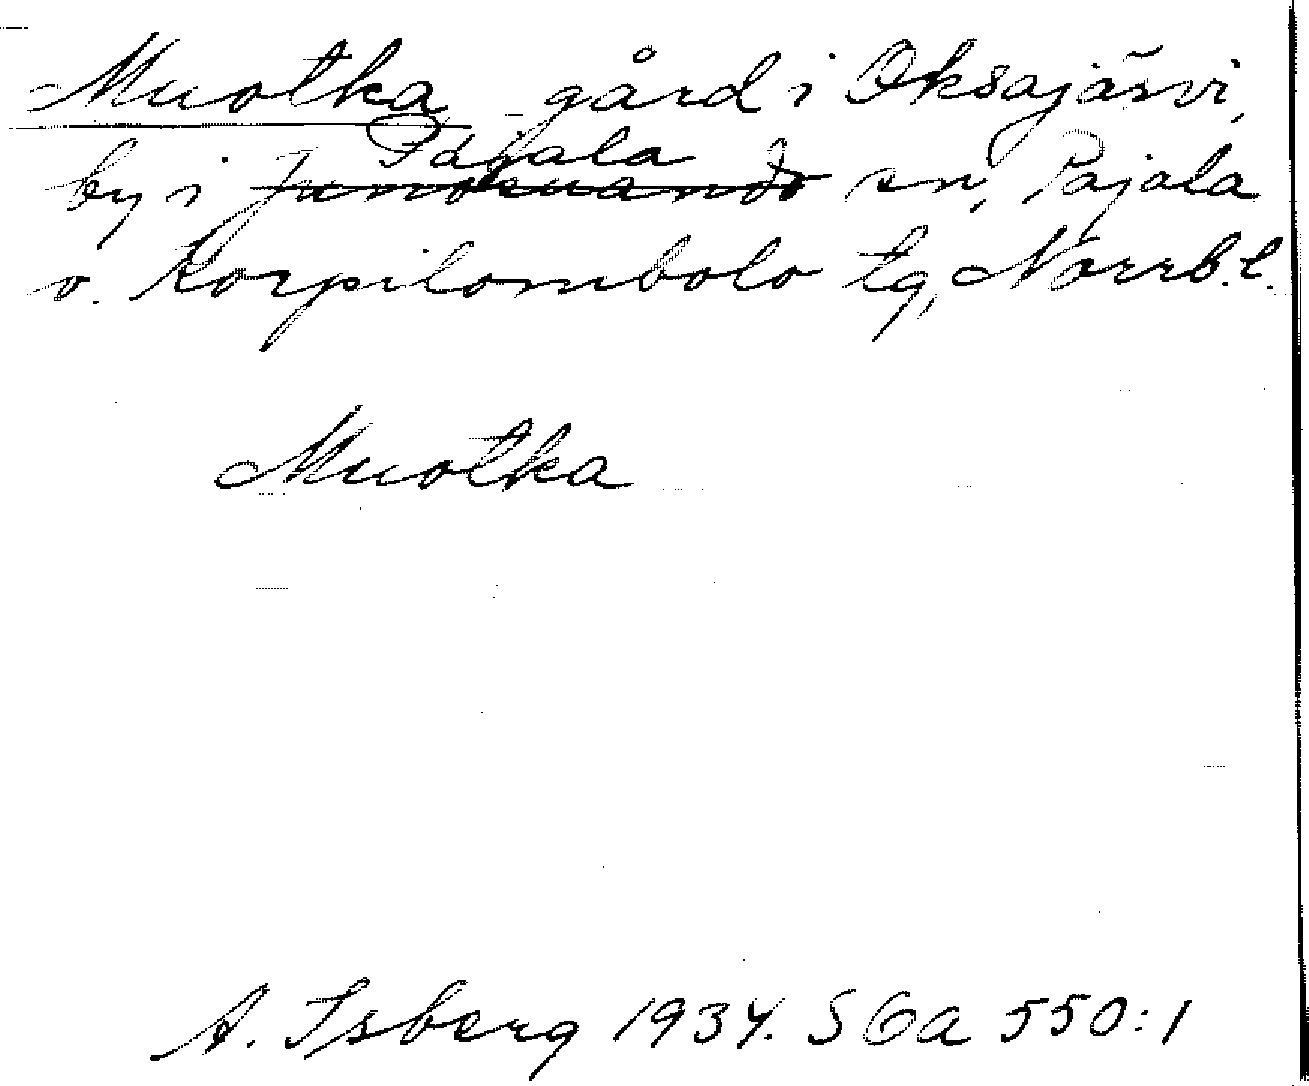 Muotka, gård i Oksajärvi,
by i Junosuando Pajala sn, Pajala
o. Korpilombolo tg, Norrb. l.
Muotka
A. Isberg 1934. SOA 550:1